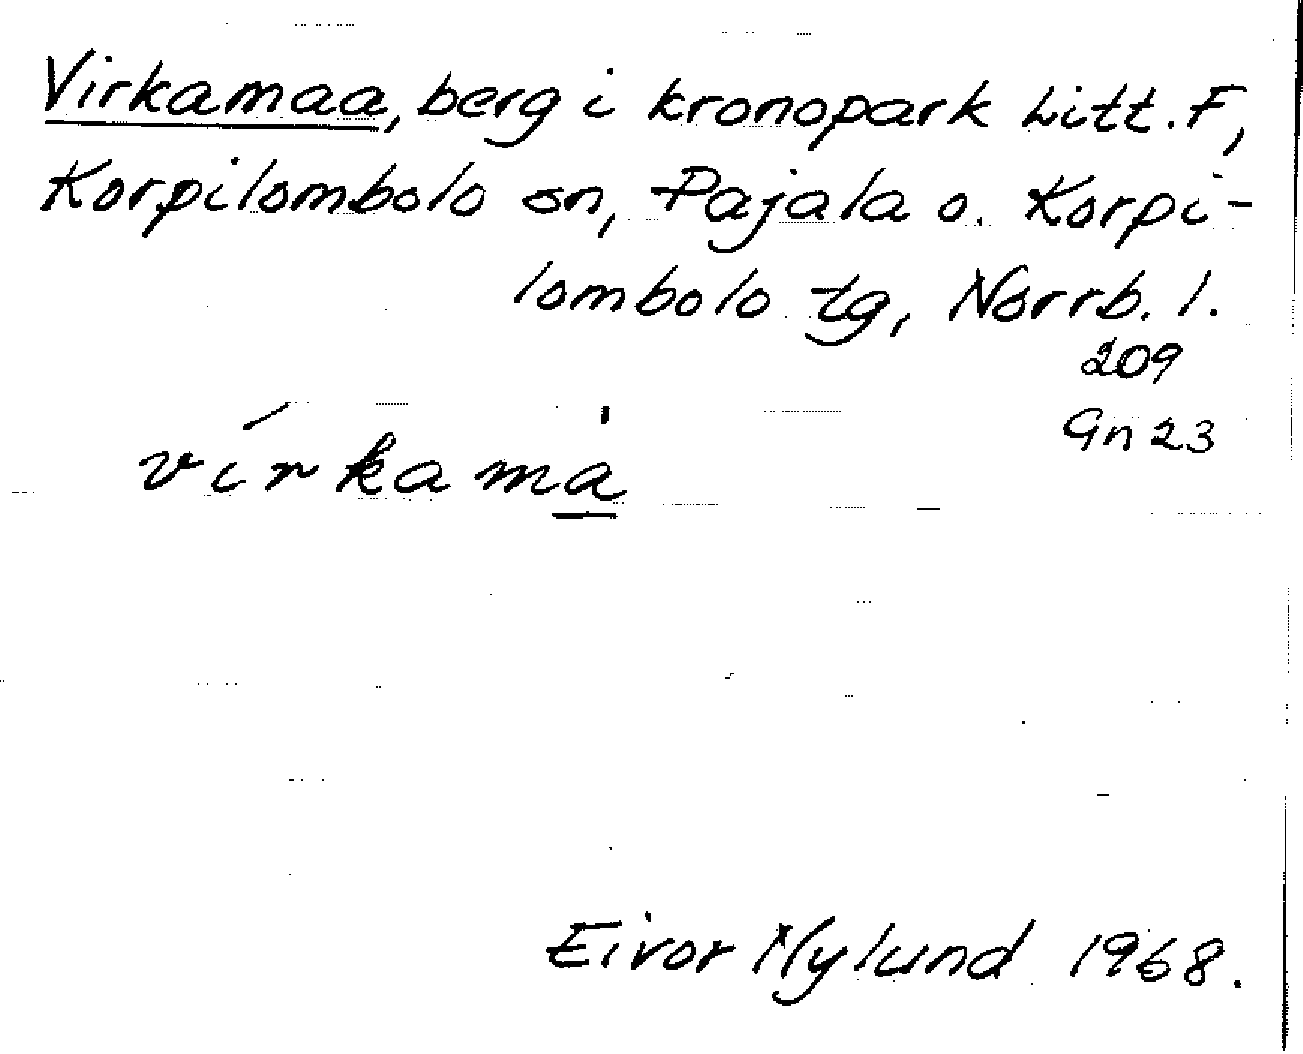 Virkamaa, berg i kronopark Litt. F,
Korpilombolo sn, Pajala o. Korpi-
lombolo tg, Norrb. l.
209
Gn 23
vírkamà̱
Eivor Nylund 1968.